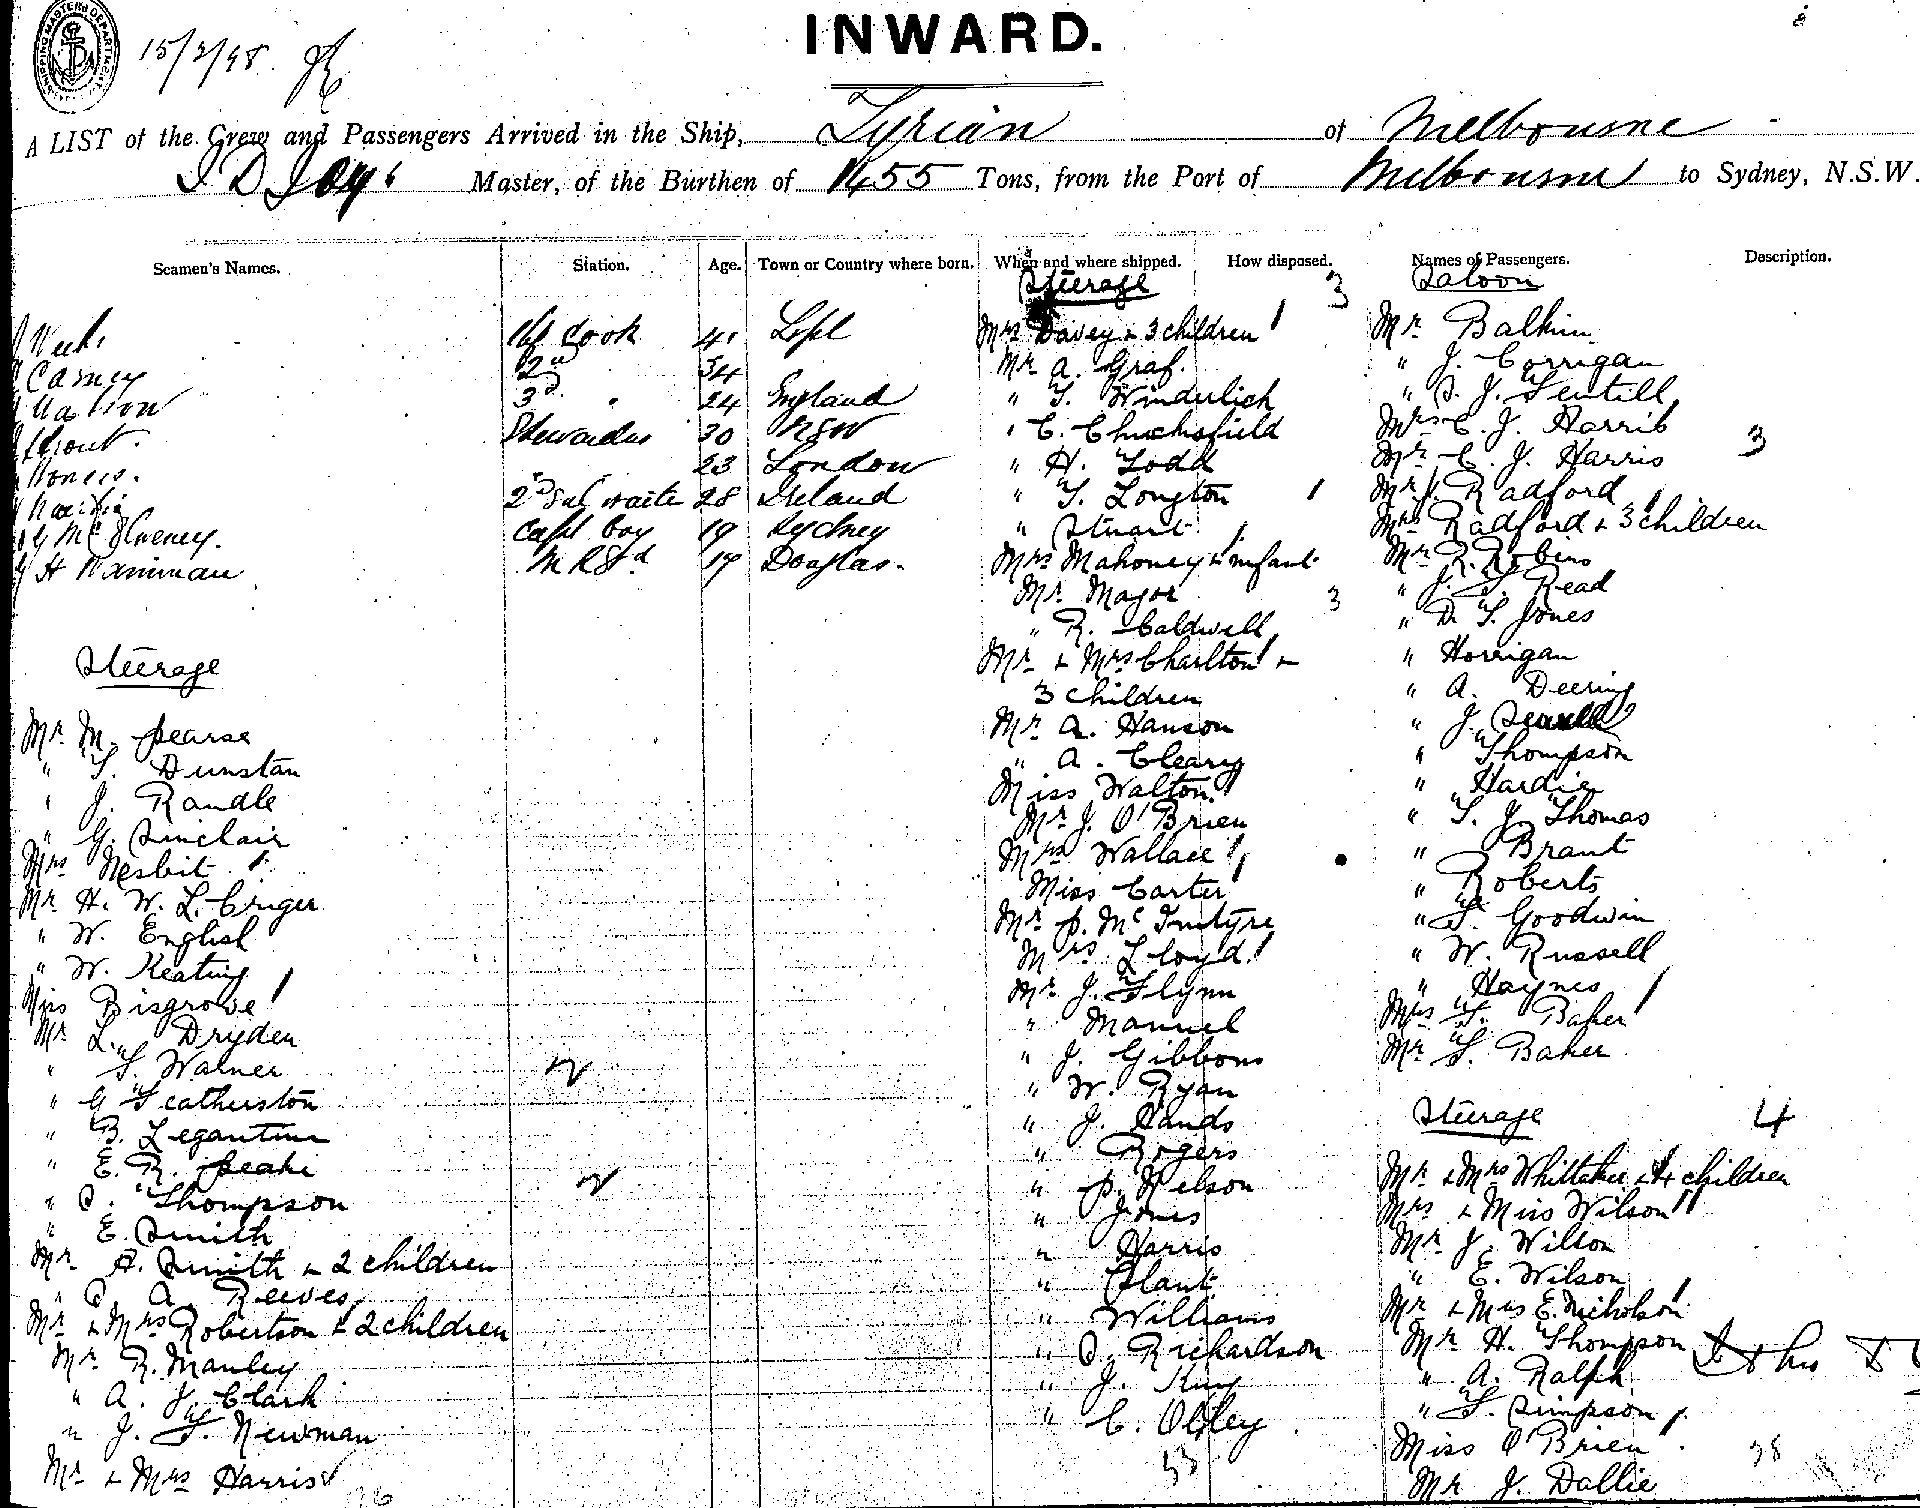 SHIPPING MASTER'S DEPARTMENT
15/2/98.
INWARD.
A LIST of the Crew and Passengers Arrived in the Ship, Tyrian of Melbourne
Master, of the Burthen of 1455 Tons, from the Port of Melbourne to Sydney, N.S.W.
Seamen's Names. Station. Age. Town or Country where born. When and where shipped. How disposed. Names of Passengers. Description.
cook 41 Lpl
Carney 2nd 34
3d " 24 England
Stewardess 30 NSW
23 London
2nd Sal waite 28 Ireland
McIlveney. Capt boy 19 Sydney
H 17 Douglas.
Steerage
Mr M. Pearse
" T. Dunstan
" J. Randle
" G. Sinclair
Mrs Nesbit
Mr H. W. L. Cruger
" W. English
" W. Keating
Miss Bisgrove
Mr L. Dryden
" T. Warner
" G Featherston
" B. Legantine
" E. R. Peake
" S. Thompson
" E. Smith
Mr A. Smith + 2 children
" A. Reeves
Mr + Mrs Robertson + 2 children
Mr R. Manley
" A. J. Clark
" J. F. Newman
Mr + Mrs Harris
Steerage 3
Mrs Davey + 3 children
Mr A. Graf.
" T. Winderlich
" C. Chuchsfield
" H. Todd
" T. Longton
" Stuart
Mrs Mahoney + infant
Mr. Major 3
" R. Caldwell
Mr + Mrs Charlton +
3 children
Mr A. Hanson
" A. Cleary
Miss Walton
Mr J. O'Brien
Mrs Wallace
Miss Carter
Mr P. McIntyre
Mrs Lloyd
Mr J. Flynn
" Manuel
" J. Gibbons
" W. Ryan
" J. Hands
" Rogers
" P. Nelson
" Jones
" Harris
" Plant
" Williams
" S. Richardson
" J. King
" C. Obley
53
Saloon
Mr Balkin
" J. Corrigan
" S. J. Sentill
Mrs C. J. Harris 3
Mr C. J. Harris
Mr J. Radford
Mrs Radford + 3 children
Mr R. Robins
" J. S. Read
" D. T. Jones
" Horrigan
" A. Deering
" J.
" Thompson
" Hardie
" T. J. Thomas
" Brant
" Roberts
" T. Goodwin
" W. Russell
" Haynes
Mrs T. Baker
Mr T. Baker
Steerage 4
Mr + Mrs Whittaker + 4 children
Mrs + Miss Wilson
Mr J. Wilson
" E. Wilson
Mr + Mrs E. Nicholson
Mr H. Thompson
" A. Ralph
" T. Simpson
Miss O'Brien 38
Mr J. Dallie